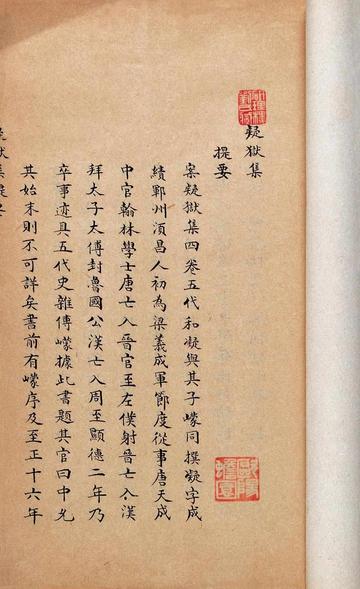 疑獄集
提要
案疑獄集四卷五代和凝與其子㠓同撰凝字成
績鄆州湏昌人初為梁義成軍節度從事唐天成
中官翰林學士唐亡入晉官至左僕射晉亡入漢
拜太子太傅封魯國公漢亡入周至顯德二年乃
卒事迹具五代史雜傳㠓據此書題其官曰中允
其始末則不可詳矣書前有㠓序及至正十六年
獄集提要